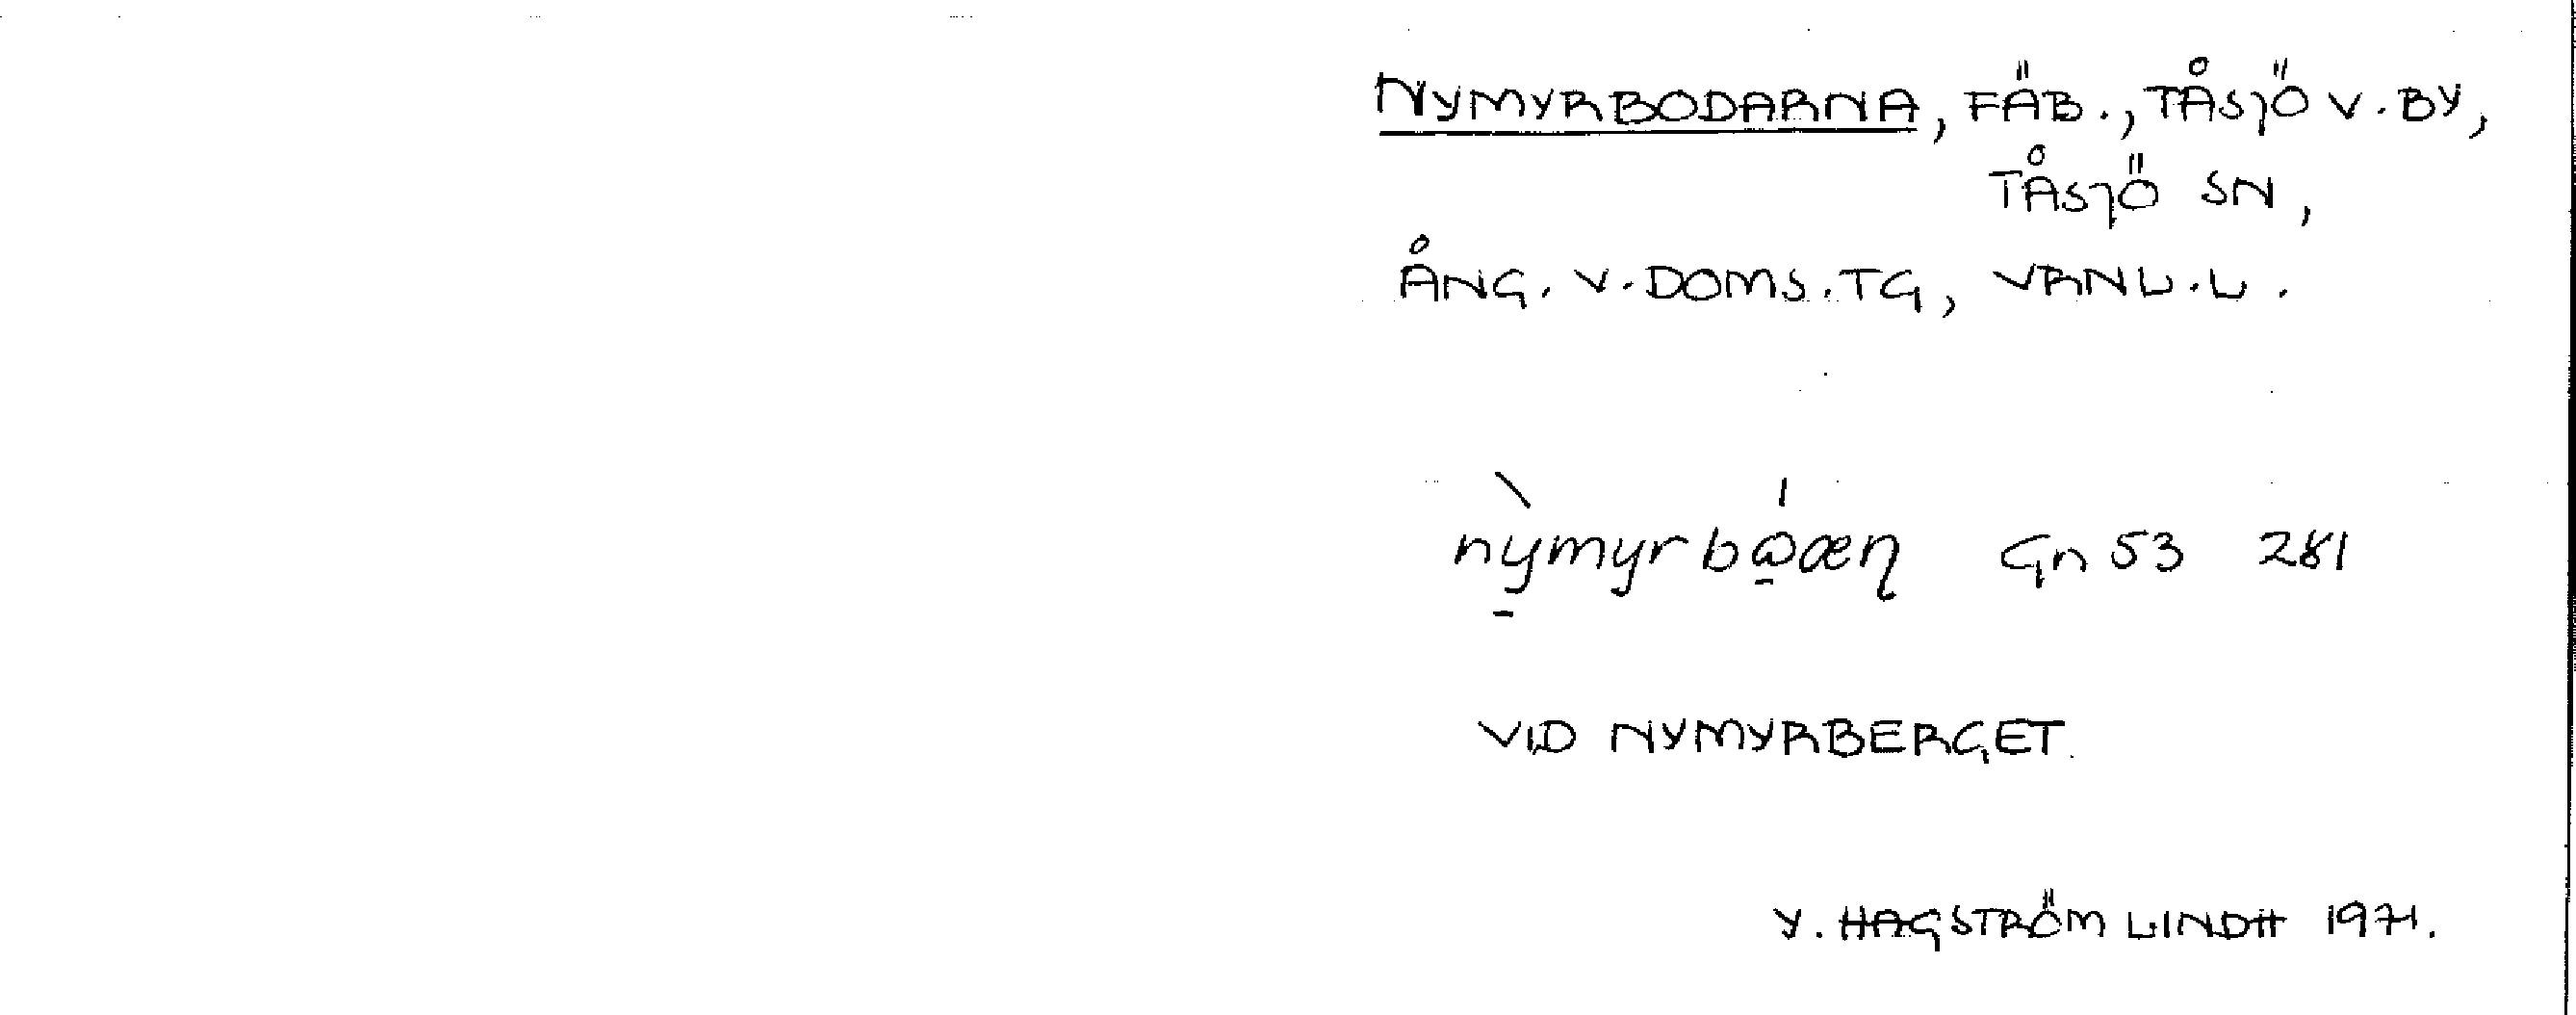 NYMYRBODARNA, FÄB., TÅSJÖ V. BY,
TÅSJÖ SN,
ÅNG. V. DOMS. TG, VRNL. L.
Gn 53 281
VID NYMYRBERGET.
Y. HAGSTRÖM LINDH 1971.